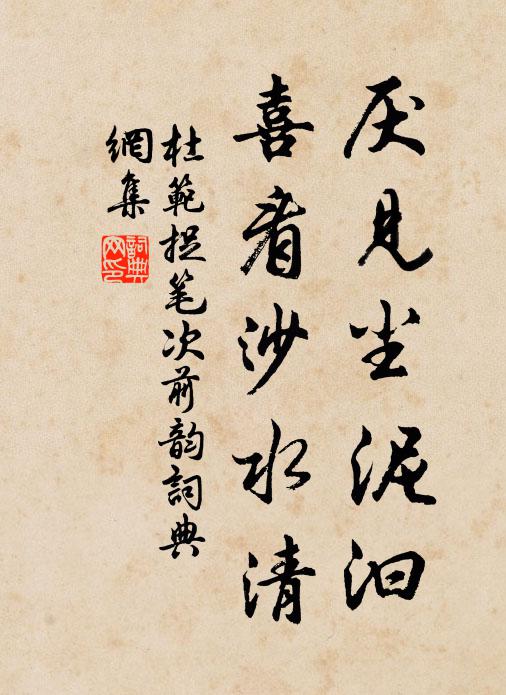 厌见尘泥汩
喜看沙水清
杜範捉笔次前韵詞典
網集
詞典网印